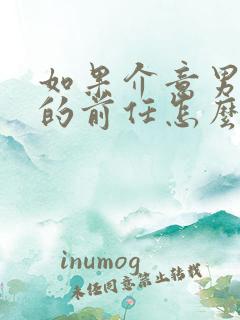 如果介意男
的前任怎麽
inumog
未经同意禁止转载